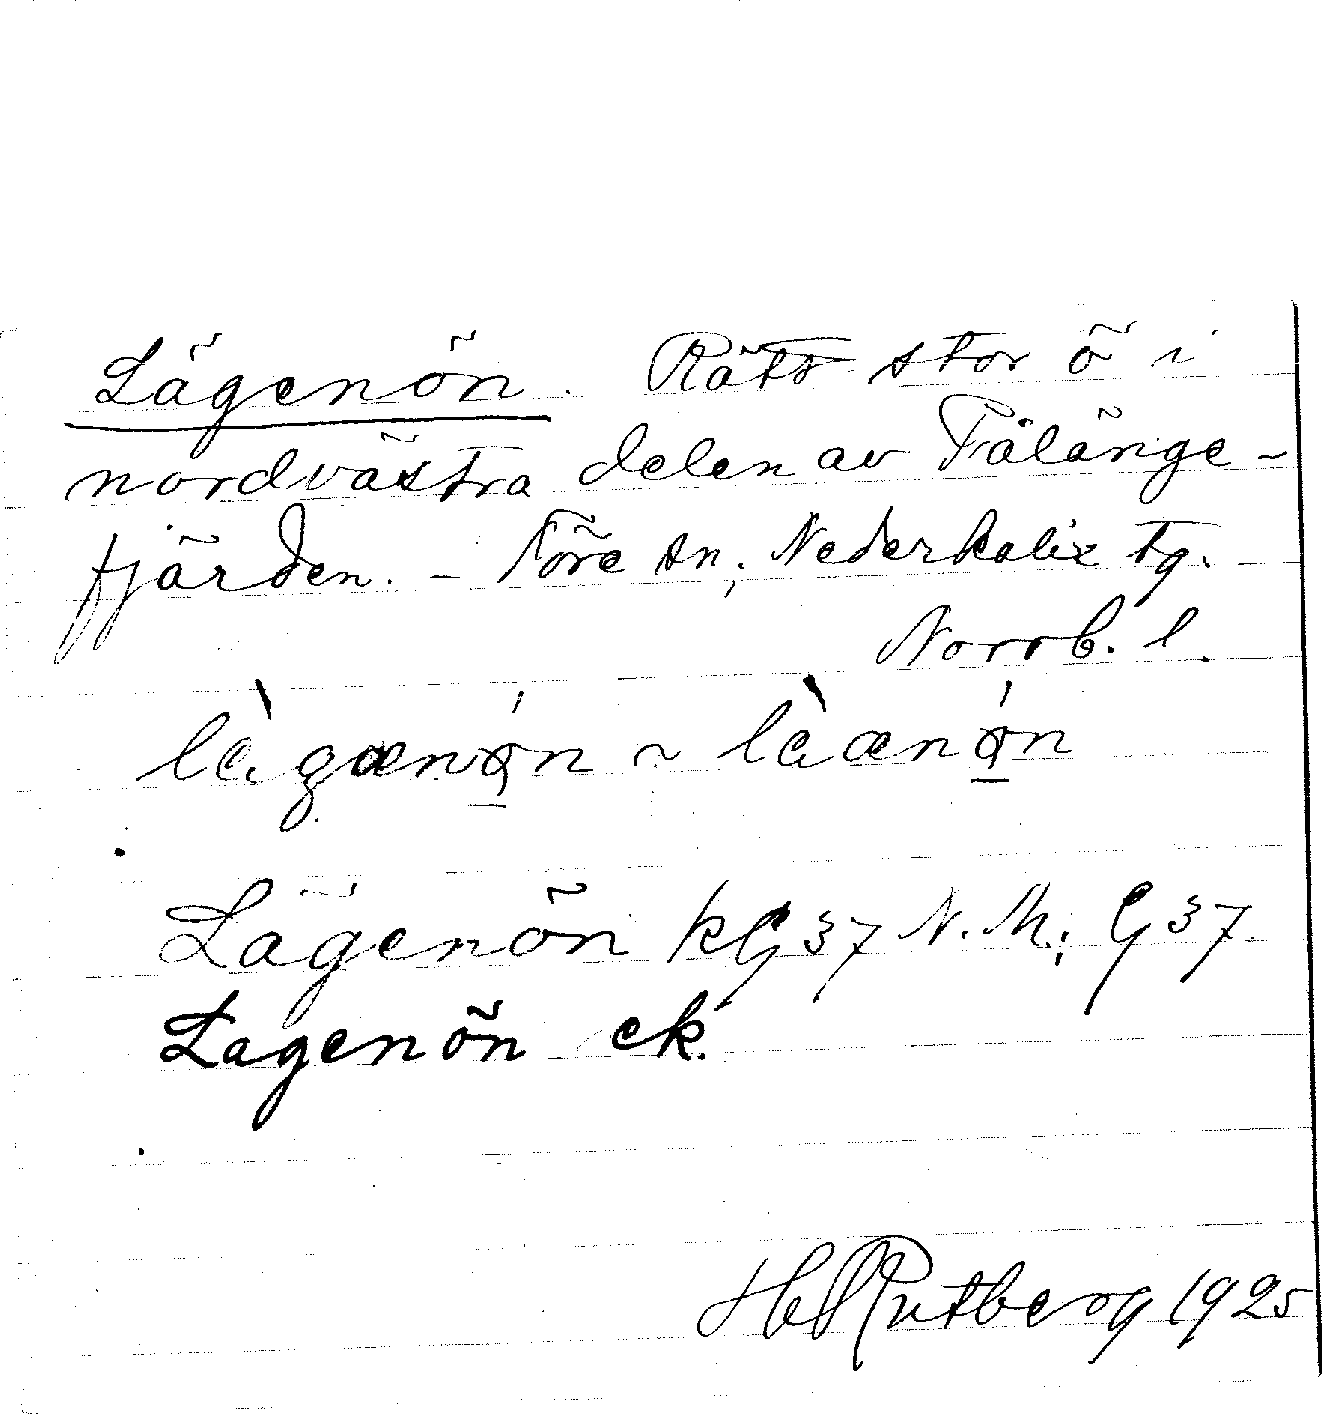 Lägenön. Rätt stor ö i
nordvästra delen av Trålänge-
fjärden. - Töre sn, Nederkalix tg.
Norrb. l.
Lägenön kG 37 N. M., G 37
Lagenön ek.
H Rutberg 1925